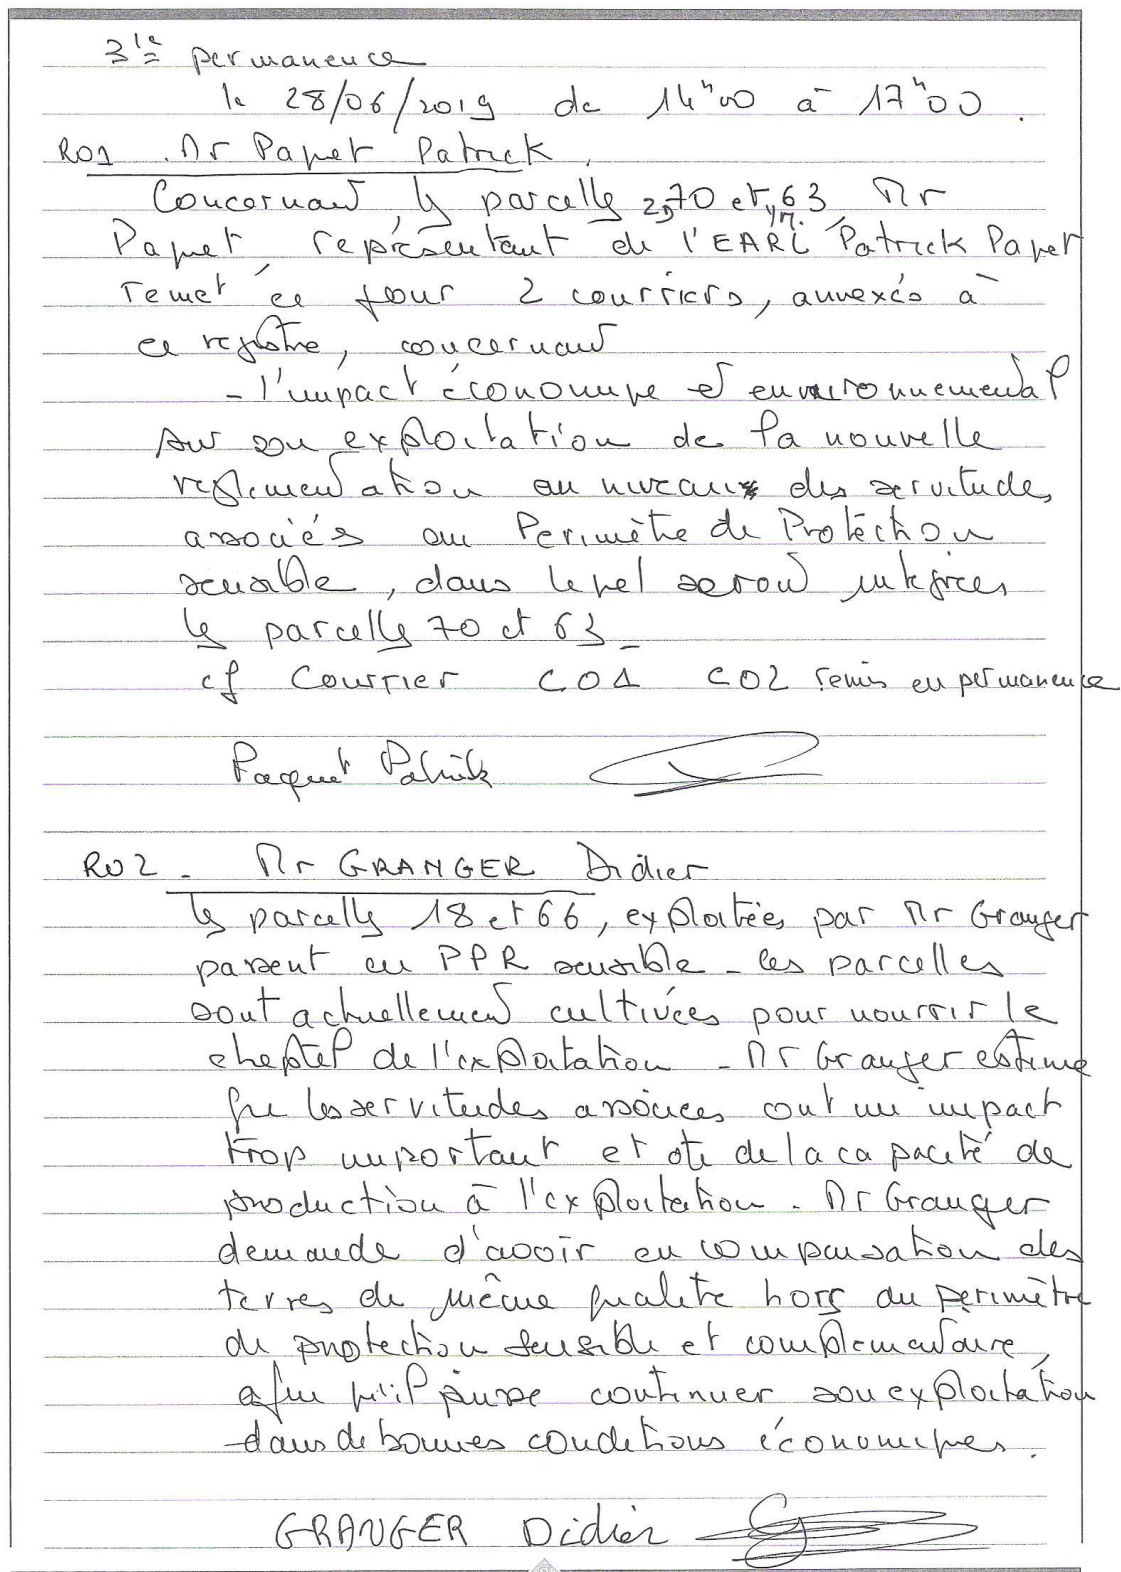 3ie permanence
le 28/06/2019 de 14h00 à 17h00.
R01 . Mr Paquet Patrick,
Concernant, les parcelles ZD70 et 63 Mr
Paquet, représentant de l'EARL Patrick Paquet
remet ce jour 2 courriers, annexés à
ce registre, concernant
- l'impact économique et environnemental
sur son exploitation de la nouvelle
reglementation au niveaux des servitudes
associés au Perimètre de Protection
sensible, dans lequel seront intégrées
les parcelles 70 et 63
cf Courrier C01 C02 remis en permanence
Paquet Patrick
R02 - Mr GRANGER Didier
les parcelles 18 et 66, exploitées par Mr Granger
passent en PPR sensible - les parcelles
sont actuellement cultivées pour nourrir le
cheptel de l'exploitation - Mr Granger estime
que les servitudes associées ont un impact
trop important et ote de la capacité de
production à l'exploitation. Mr Granger
demande d'avoir en compensation des
terres de même qualité hors du perimètre
de protection sensible et complementaire,
afin qu'il puisse continuer son exploitation
dans de bonnes conditions économiques.
GRANGER Didier